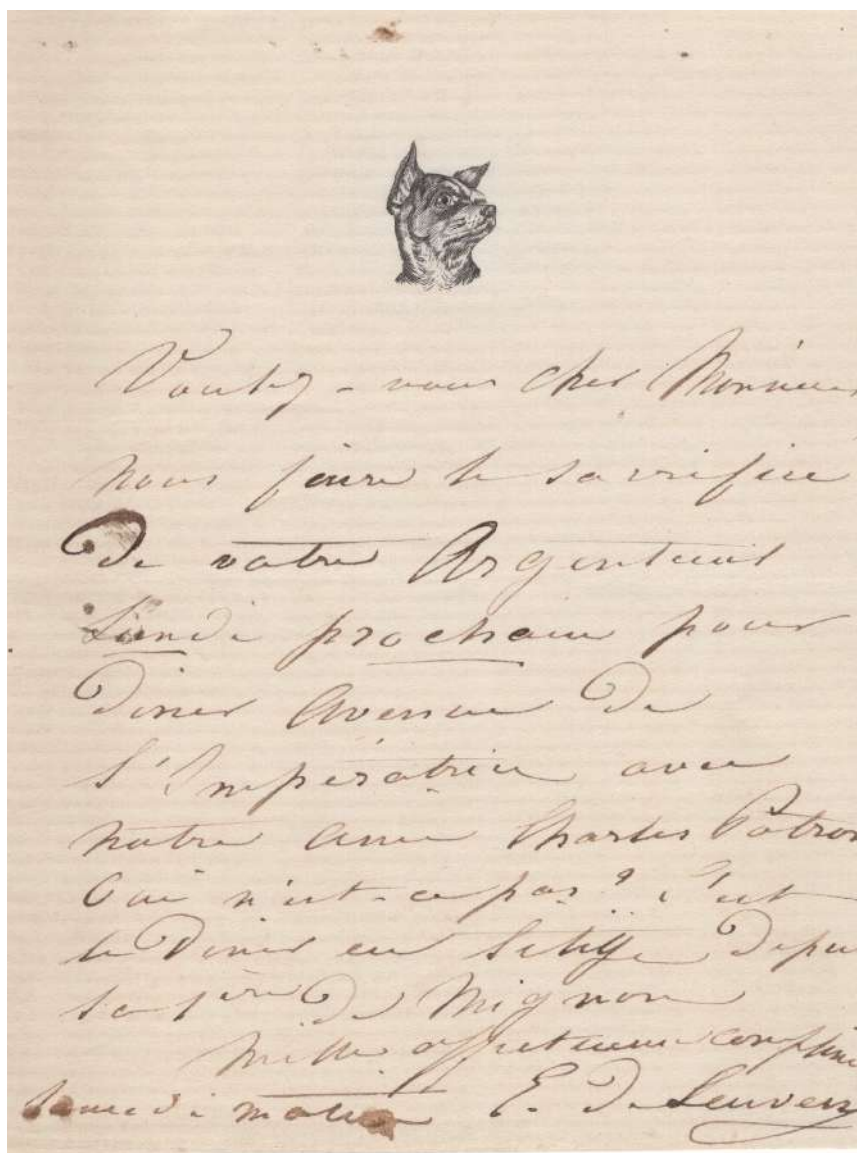 Voulez-vous cher Monsieur
nous faire le sacrifice
de votre Argenteuil
Lundi prochain pour
diner Avenue de
l'Impératrice avec
notre ami Charles Potron
Oui n'est-ce pas? C'est
le diner en litige depuis
la 1ère de Mignon
Mille affectueux complim
Samedi matin E. de Leuven